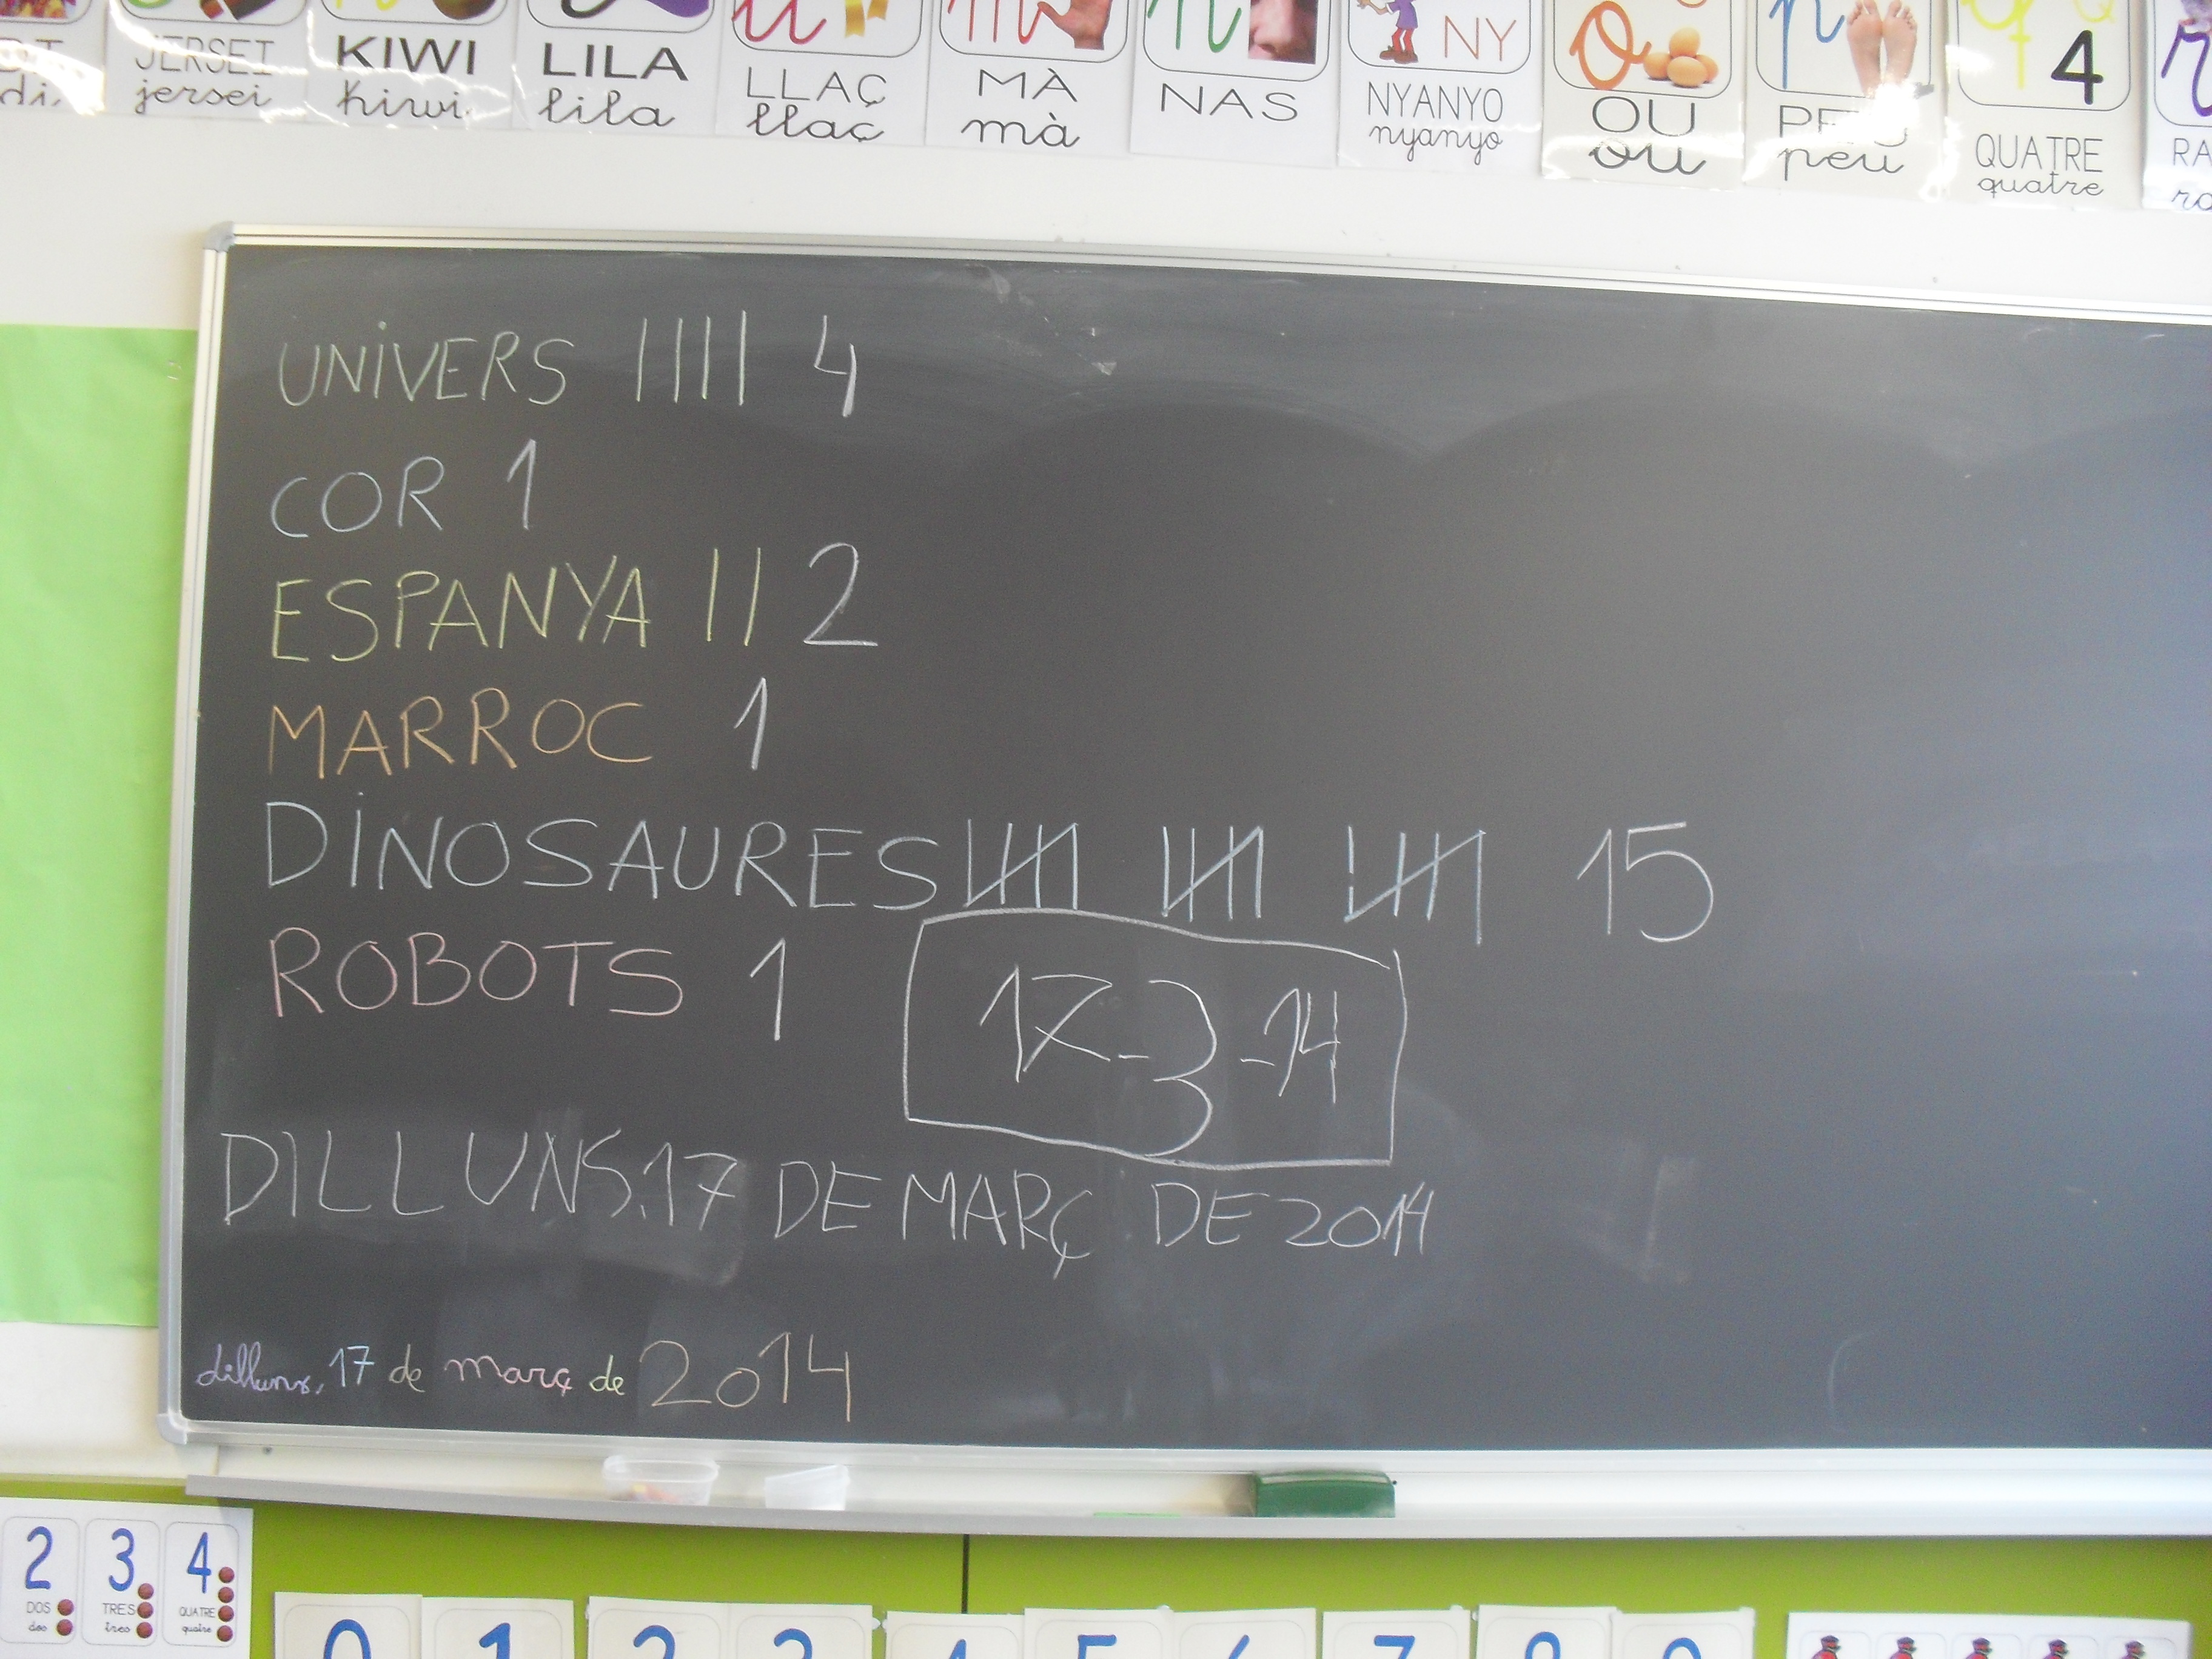 JERSEI KIWI LILA LLAÇ MÀ NAS NY NYANYO OU PEU 4 QUATRE
jersei kiwi lila llaç mà nyanyo ou peu quatre
UNIVERS |||| 4
COR 1
ESPANYA || 2
MARROC 1
DINOSAURES 15
ROBOTS 1
17-3-14
DILLUNS, 17 DE MARÇ DE 2014
dilluns, 17 de març de 2014
2 3 4
DOS TRES QUATRE
dos tres quatre
0 1 2 3 4 5 6 7 8 9